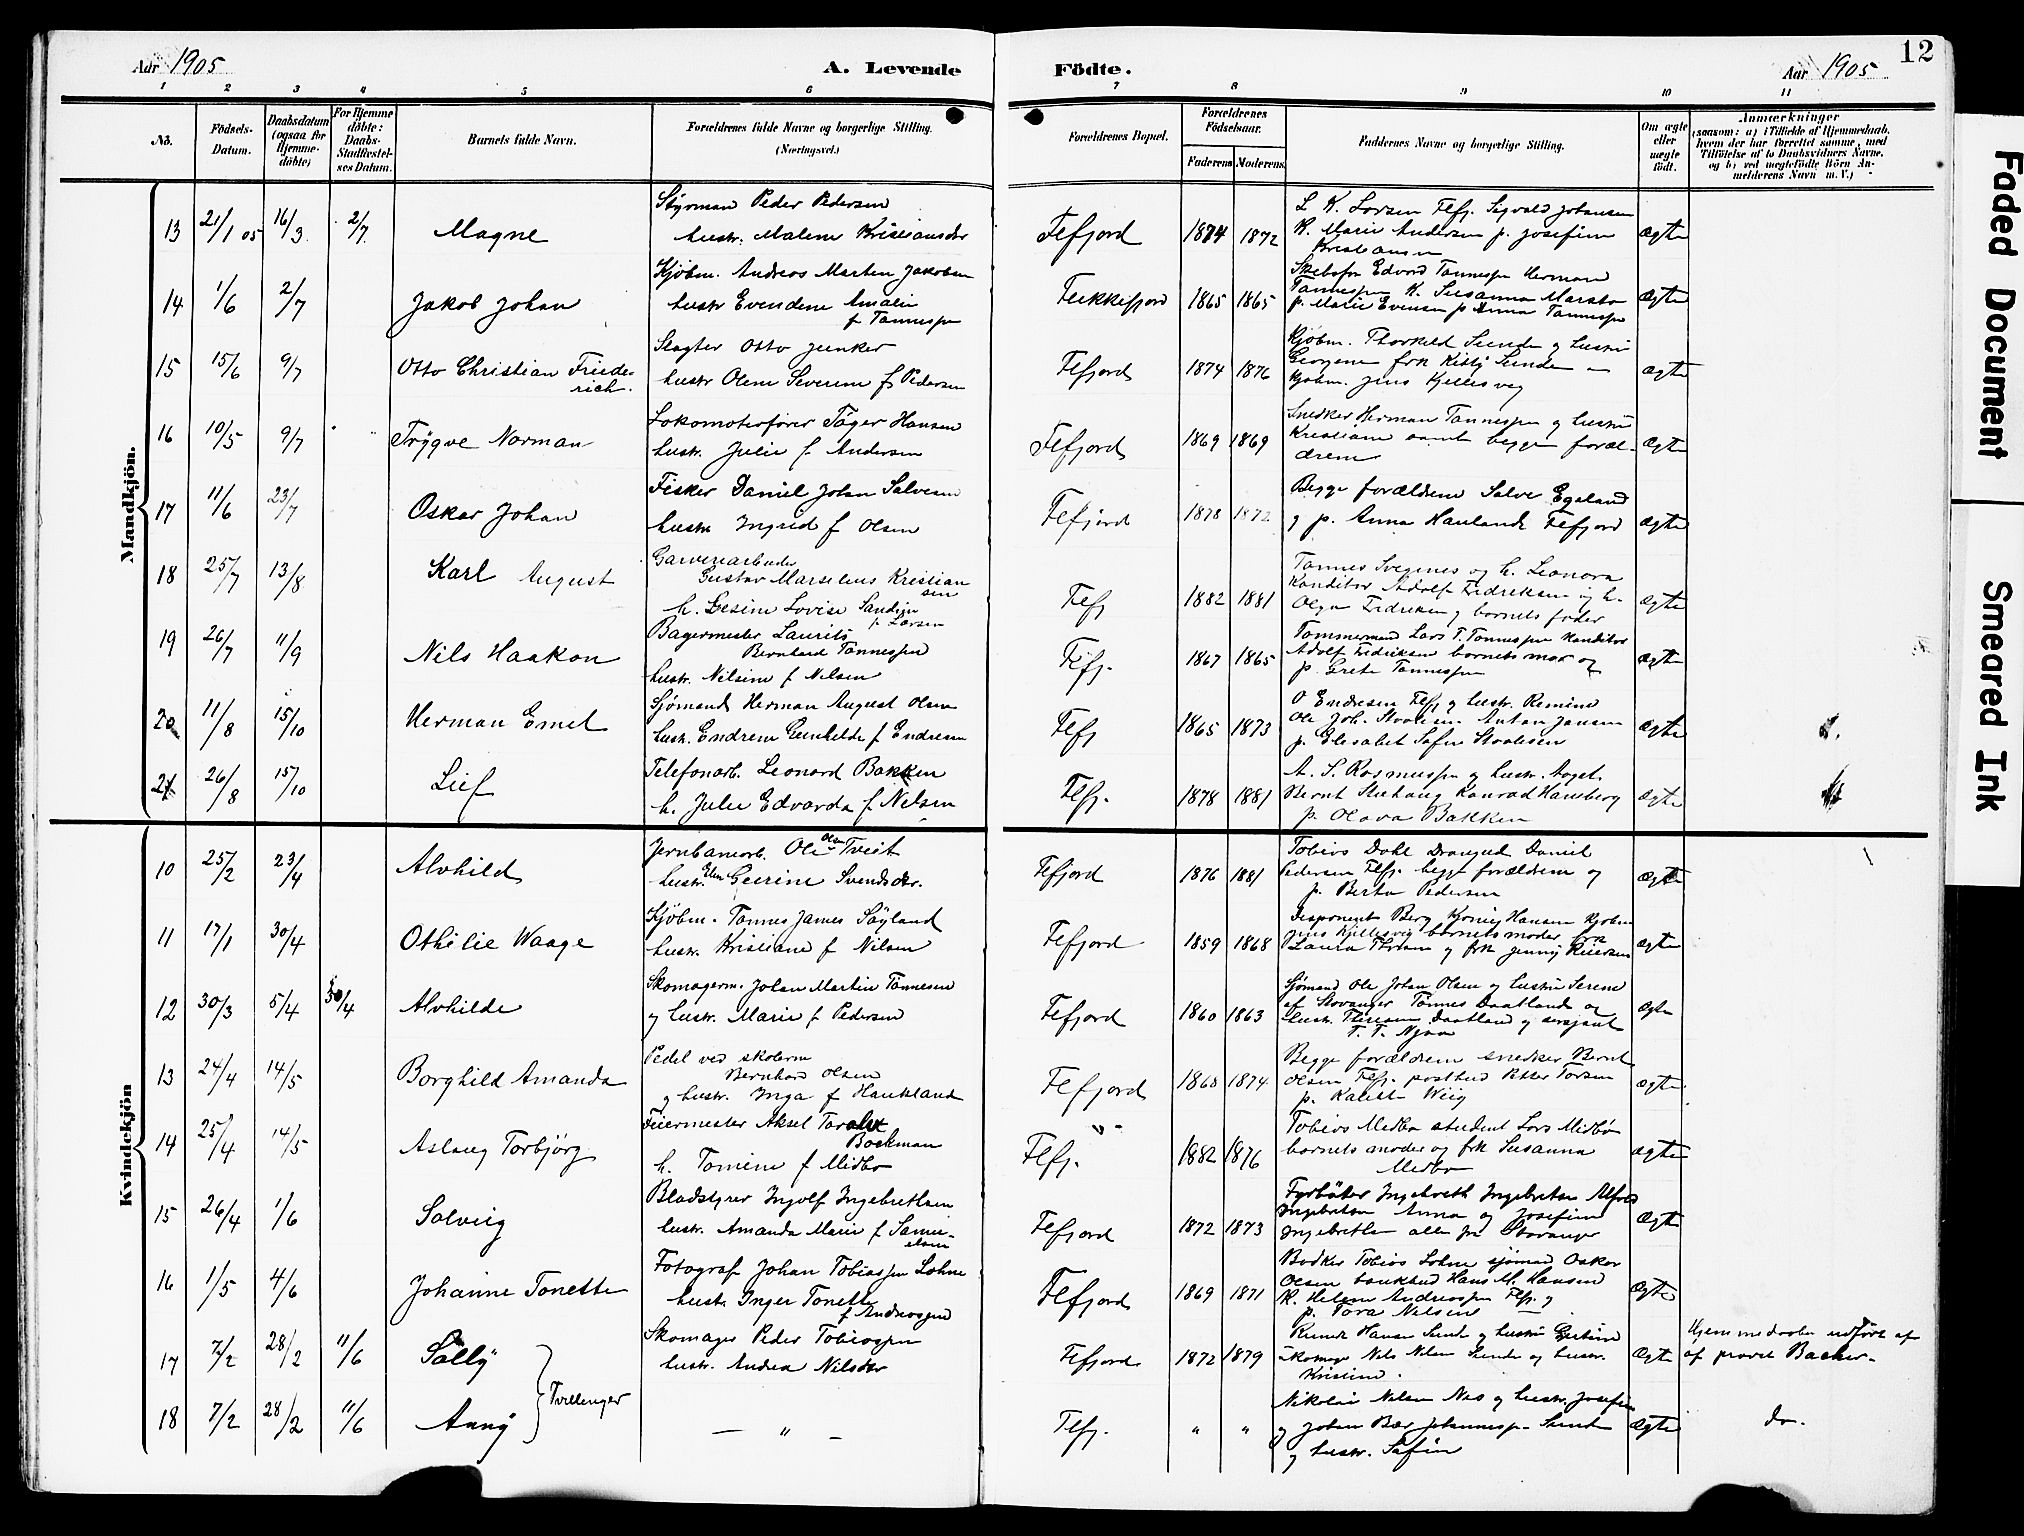 Aar 1905
A. Levende
Födte.
Aar 1905
12
1 2 3 4 5 6 7 8 9 10 11
Nö.
Födsels-Datum.
Daabsdatum (ogsaa for Hjemme-döbte)
For Hjemme döbte: Daabs-Stadfæstel-ses Datum.
Barnets fulde Navn.
Forældrenes fulde Navne og borgerlige Stilling.
(Næringsvei.)
Forældrenes Bopæl.
Forældrenes Födselsaar.
Faderens Moderens
Faddernes Navne og borgerlige Stilling.
Om ægte eller uægte födt.
Anmærkninger
(saasom: a) i Tilfælde af Hjemmedaab, hvem der har forrettet samme, med Tilföielse af to Daabsvidners Navne, og b) ved uægtefödte Börn Anmelderens Navn m. V.)
Mandkjön.
13 21/1 05 16/3 2/7 Magne
Styrman Peder Pedersen
hustr. Malene Kristiansdtr
Flefjord 1874 1872
L K. Larsen Flfj. Sigvald Johansen
K. Marie Andersen p. Josefine
Kristiansen
ægte
14 1/6 2/7 Jakob Johan
Kjöbm. Andreas Martin Jakobsen
hustr Evendine Amalie
f Tønnesen
Flekkefjord 1865 1865
Edvard Tønnesen Herman
Tønnesen K. Susanna
p. Marie Evensen p Anna Tønnesen
ægte
15 15/6 9/7 Otto Christian Friede-
rich.
Slagter Otto Junker
hustr Olene Severine f Pedersen
Flefjord 1874 1876
Kjøbm. Thorkild Sunde og hustru
Georgine frk Kitty Sunde
Kjøbm. Jens Kjellesvig
ægte
16 10/5 9/7 Trygve Norman
Lokomotivfører Tøger Hansen
hustr. Julie f Andersen
Flefjord 1869 1869
Snedker Herman Tønnesen og hustru
Kristiane samt begge foræl-
drene
ægte
17 11/6 23/7 Oskar Johan
Fisker Daniel Johan Salvesen
hustr. Ingrid f Olsen
Flefjord 1878 1872
Begge forældrene Salve Egeland
og p. Anna Hauland Flefjord
ægte
18 25/7 13/8 Karl August
Garveriarbeider
Gustav Marselius Kristian
sen
h. Gesine Lovise
f. Larsen
Flefj 1882 1881
Tønnes Svegenes og h. Leonora
Konditor Adolf Fredriksen og h.
Olga Fredriksen og barnets fader
ægte
19 26/7 11/9 Nils Haakon
Bagermester Laurits
Bernhard Tønnesen
hustr. Nilsine f Nilsen
Flfj. 1867 1865
Tømmermand Lars T. Tønnesen Konditor
Adolf Fredriksen barnets mor og
p. Grete Tønnesen
ægte
20 11/8 15/10 Herman Emil
Sjømand Herman August Olsen
hustr. Endrine Gunhilde f Endresen
Flefj 1865 1873
O Endresen Flefj og hustr. Remine
Ole Joh. Anton Jansen
p. Elisabet Sofie
ægte
21 26/8 15/10 Leif
Telefonarb. Leonard Bakken
h. Julie Edvarda f Nilsen
Flefj. 1878 1881
A. S. Rasmussen og hustr. Aaget.
Bernt Konrad Hansberg
p. Olava Bakken
ægte
Kvindekjön
10 25/2 23/4 Alvhild
Jernbanearb. Ole Olsen Tveit
hustr. Elen Geerine Svendsdtr.
Flefjord 1876 1881
Tobias Dahl Drangeid Daniel
Pedersen Flefj. begge forældrene og
p. Berta Pedersen
ægte
11 17/1 30/4 Othilie Waage
Kjöbm. Tønnes James Søyland
hustr. Kristiane f Nilsen
Flefjord 1859 1868
Disponent Berg Hansen kjøbm
Jens Kjellesvig barnets moder frk
Laura og frk Jenny
ægte
12 30/3 5/4 30/4 Alvhilde
Skomagerm. Johan Martin Tønnesen
og hustr. Marie f Pedersen
Flefjord 1860 1863
Sjømand Ole Johan Olsen og hustru Serene
af Stavanger Tønnes Daatland og
hustr. Daatland og sersjant
T. T. Njaa
ægte
13 24/4 14/5 Borghild Amanda
Pedel ved skolerne
Bernhard Olsen
og hustr. Inga f Haukland
Flefjord 1868 1874
Begge forældrene snedker Bernt
Olsen Flfj. postbud Petter Torsen
p. Weig
ægte
14 25/4 14/5 Aslaug Torbjörg
Feiermester Aksel
Bockman
h. Tomine f Midbø
Flefj. 1882 1876
Tobias Midbø student Lars Midbø
barnets moder og frk Susanna
Midbø
ægte
15 26/4 1/6 Solveig
Bladstyrer Ingolf Ingebretsen
hustr. Amanda Marie f Samu-
elsen
Flefjord 1872 1873
Fyrbøter Ingebreth Ingebretsen Alfred
Ingebretsen Anna og Josefine
Ingebretsen alle fra Stavanger
ægte
16 1/5 4/6 Johanne Tonette
Fotograf Johan Tobiassen Lohne
hustr. Inger Tonette
f Andreassen
Flefjord 1869 1871
Bødker Tobias Lohne sjømand Oskar
Olsen bankbud Hans M. Hansen
K. Helene Andreassen Flfj. og
p. Tora Nilsen
ægte
17 7/2 28/2 11/6 Sally
Skomager Peder Tobiassen
hustr. Andrea Nilsdtr
Flefjord 1872 1879
Hansen Sunde og hustru Gertine
Skomager Nils Nilsen Sunde og hustr.
Kristine.
ægte
Hjemmedaaben udført af
af provst Bacher.
Tvillinger
18 7/2 28/2 11/6 Anny
— " —
Flefj. " "
Nikolai Nilsen Næs og hustr. Josefine
og Johan Bær Johannesen Sunde
og hustr. Sofie
ægte
do.
Faded Document
Smeared Ink